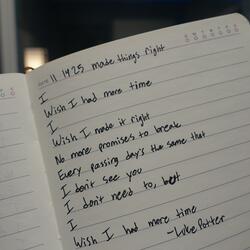 DATE 11 14 25 made things right
I
Wish I had more time
I
Wish I made it right
No more promises to break
Every passing day's the same that
I don't see you
I don't need to, but
I
Wish I had more time
-Luke Potter